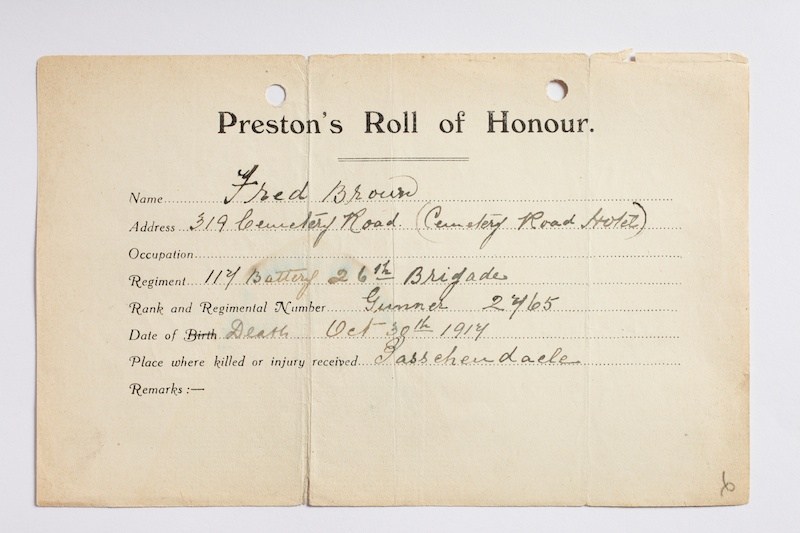 Preston's Roll of Honour.
Name Fred Brown
Address 319 Cemetery Road. (Cemetery Road Hotel)
Occupation
Regiment 117 Battery 26th Brigade
Rank and Regimental Number Gunner 2765
Date of Birth Death Oct 30th 1917
Place where killed or injury received Passchendaele
Remarks:—